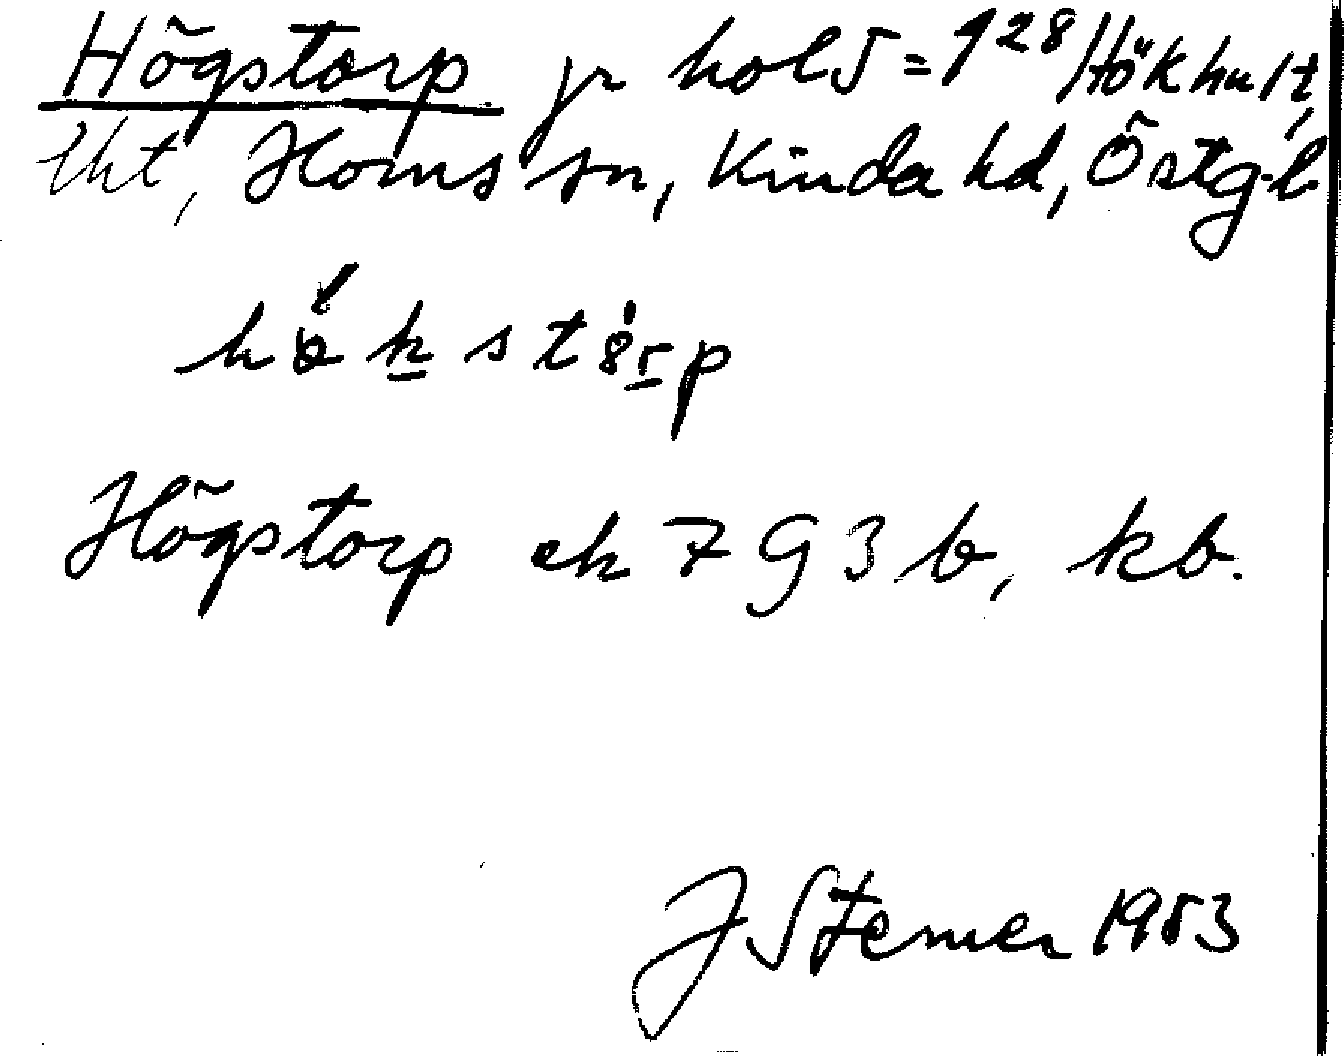 Högstorp hold = 1²⁸/Hökhult,
lht, Horns sn, Kinda hd, Östg.l.
Högstorp ek 7 G 3 b, kb.
J Sterner 1953